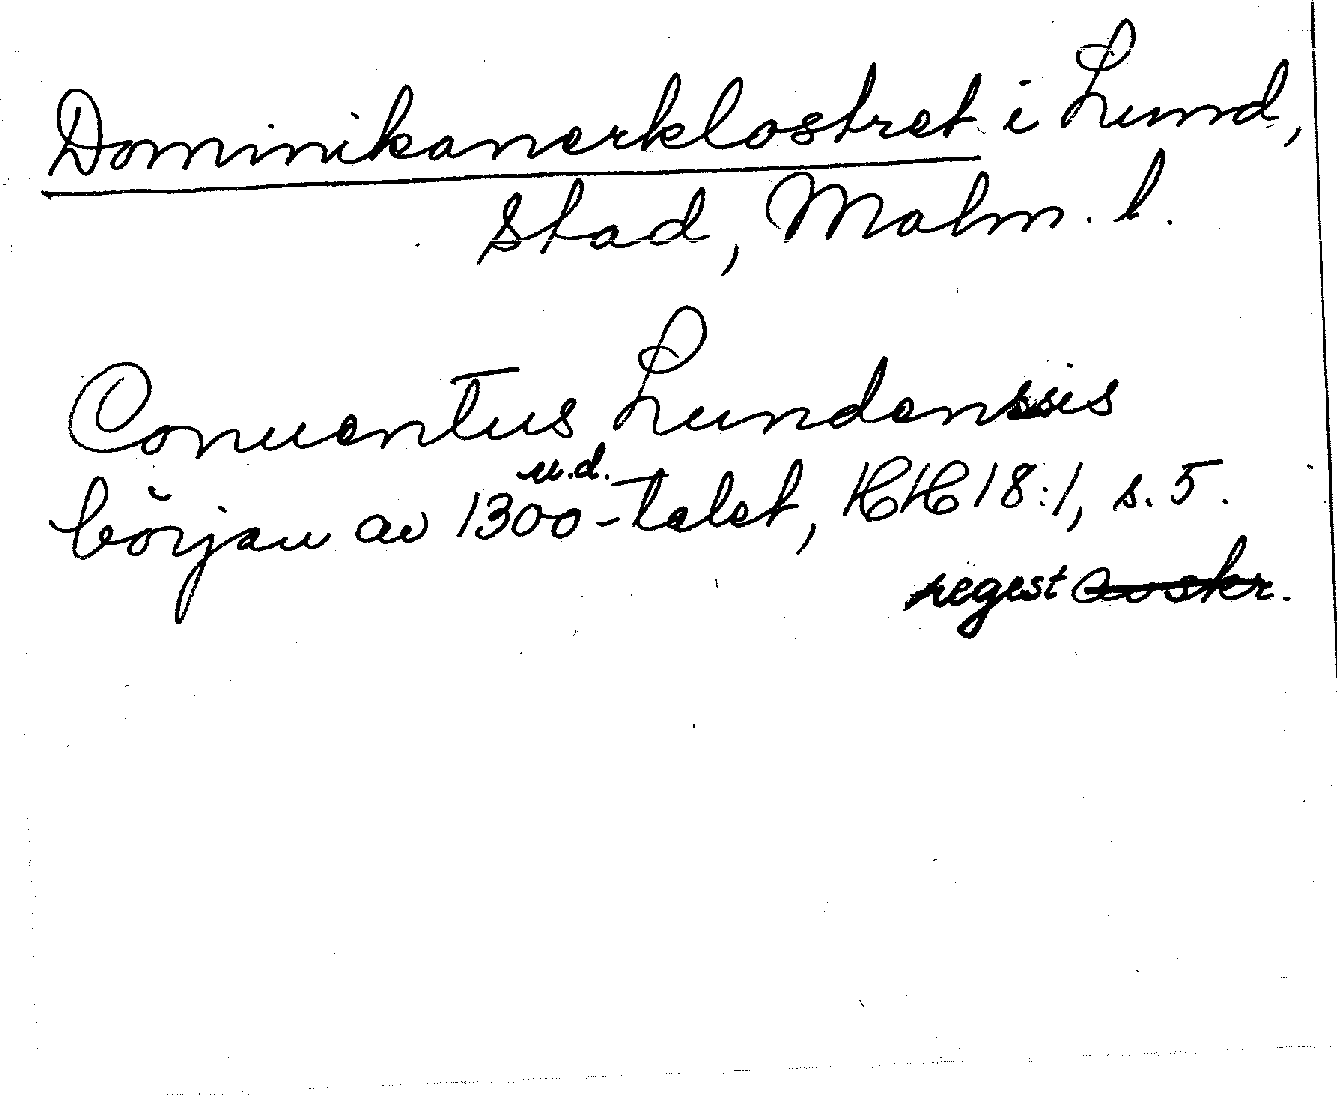 Dominikanerklostret i Lund,
stad, Malm. l.
Conuentus Lundensis
u.d.
början av 1300-talet, HH 18:1, s. 5.
regest avskr.